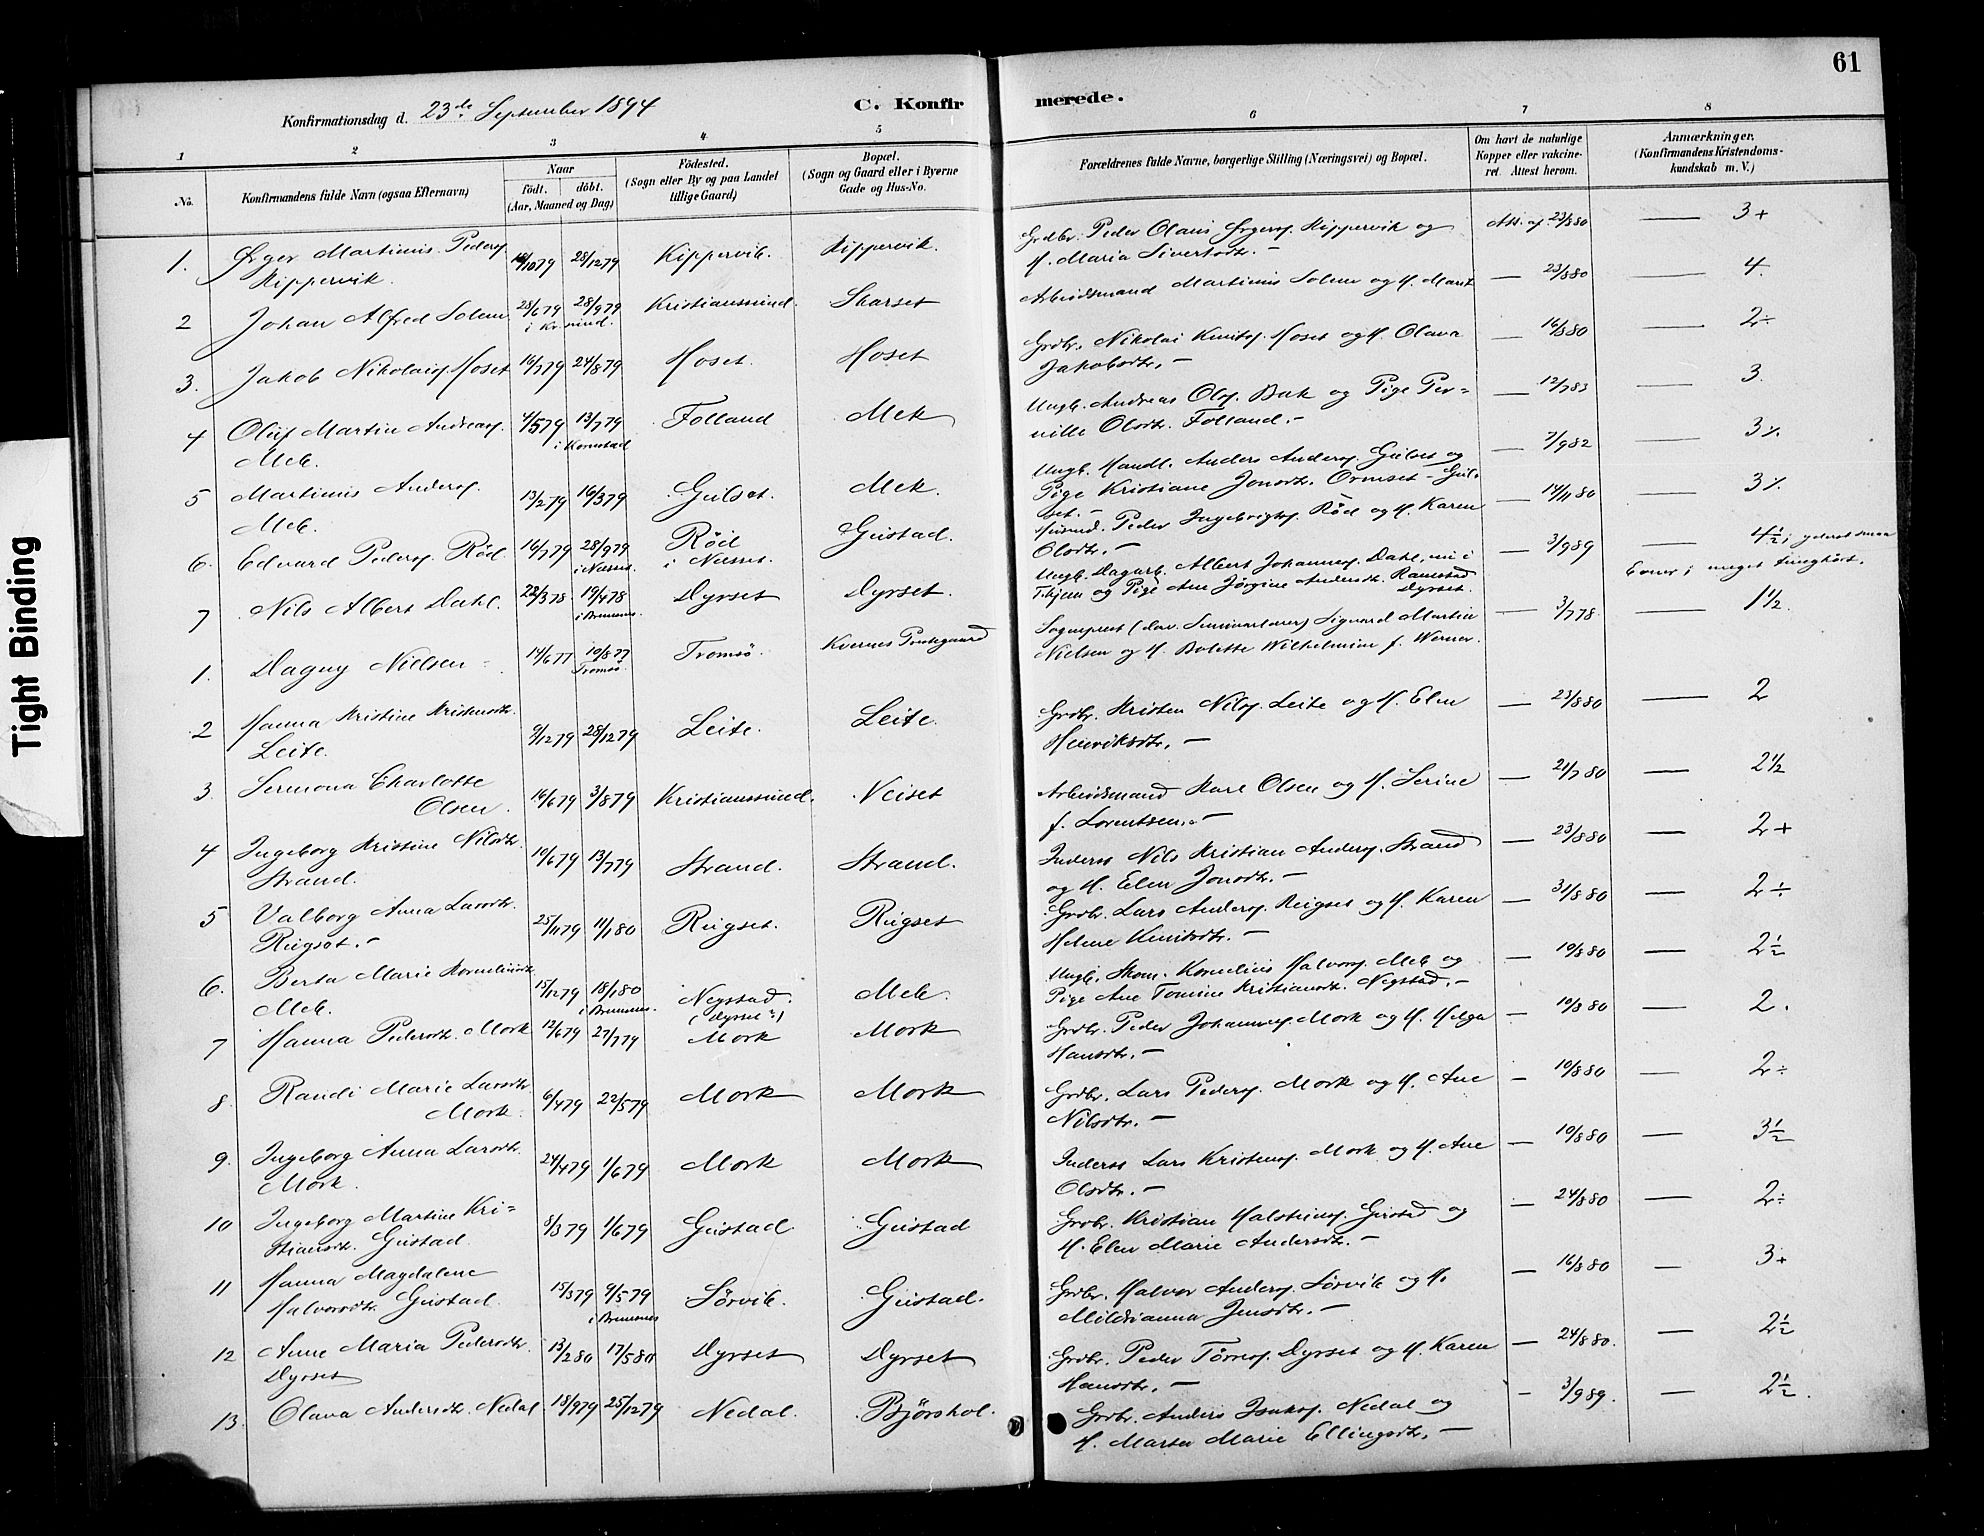 61
Konfirmationsdag d. 23de September 1894
C. Konfirmerede.
1 2 3 4 5 6 7 8
No. Konfirmandens fulde Navn (ogsaa Efternavn) Naar født. døbt. (Aar, Maaned og Dag) Fødested. (Sogn eller By og paa Landet tillige Gaard) Bopæl. (Sogn og Gaard eller i Byerne Gade og Hus-No. Forældrenes fulde Navne, borgerlige Stilling (Næringsvei) og Bopæl. Om havt de naturlige Kopper eller vakcineret. Attest herom. Anmærkninger. (Konfirmandens Kristendomskundskab m. V.)
1. Ørger Martinus Peders. Kippervik. /1079 28/1279 Kippervik. Kippervik. Grdbr. Peder Olaus Ørgers. Kippervik og H. Maria Sivertsdtr. — Att. af 23/880 — 3+
2 Johan Alfred Solem 28/679 28/979 i Krsund. Kristianssund. Skarset Arbeidsmand Martinus Solem og H. Marit — 23/880 — 4.
3. Jakob Nikolais. Hoset 16/779 24/879 Hoset. Hoset Grdbr. Nikolai Knuts. Hoset og H. Olava Jakobsdtr. — — 16/880 — 2÷
4 Oluf Martin Andreas. Mek. 4/579 13/779 i Kornstad Folland Mek Ungk. Andreas Ols. Bak og Pige Pernille Olsdtr. Folland. — — 12/783 — 3.
5 Martinus Anders. Mek. 13/279 16/379 Gulset. Mek. Ungk. Handl. Anders Anders. Gulset og Pige Kristiane Jonsdtr. Ormset - Gulset. — — 7/982 — 3%
6. Edvard Peders. Röd 16/779 28/979 i Nesset. Röd i Nesset. Gustad. Husmd. Peder Ingebrigts. Röd og H. Karen Olsdtr. — — 14/1180 — 3%
7 Nils Albert Dahl. 22/378 19/478 i Bremsnes Dyrset Dyrset. Ungk. Dagarb. Albert Johannes. Dahl, nu i Trhjem og Pige Ane Jörgine Andersdt. Ramstad Dyrset. — 3/989 — 4½ i yderst smaa Evner; meget tunghørt.
1. Dagny Nielsen 14/677 10/877 Tromsö. Tromsö. Kvernes Prestegaard Sogneprest (dav. Seminarlærer) Sigvard Martin Nielsen og H. Bolette Wilhelmine f. Werner. — 3/778. — 1½.
2 Hanna Kristine Kristensdtr. Leite. 9/1279 28/1279 Leite. Leite. Grdbr. Kristen Nils. Leite og H. Elen Henriksdtr. — — 23/880 — 2
3. Sermona Charlotte Olsen. 16/679 3/879 Kristianssund. Neiset Arbeidsmand Karl Olsen og H. Serine f. Lorentsen. — — 21/780 — 2½
4 Ingeborg Kristine Nilsdtr. Strand. 10/679 13/779 Strand. Strand. Inderst Nils Kristian Anders. Strand og H. Elen Jonsdtr. — — 23/880 — 2+
5 Valborg Anna Larsdtr. Rugset. — 25/1179 11/180 Rugset. Rugset Grdbr. Lars Anders. Rugset og H. Karen Helene Knutsdtr. — — 31/880 — 2÷
6. Berta Marie Korneliusdtr. Mek. 15/1279 18/180 i Bremsnes. Negstad. (Dyrset?) Mek. Ungk. Skom. Kornelius Halvors. Mek og Pige Ane Tomine Kristiansdt. Negstad. — — 10/880 — 2½
7 Hanna Pedersdtr. Mork 12/679 27/779 Mork Mork Grdbr. Peder Johannes. Mork og H. Helga Hansdtr. — — 10/880 — 2.
8 Randi Marie Larsdtr. Mork. 6/479 22/579 Mork Mork Grdbr. Lars Peders. Mork og H. Ane Nilsdtr. — — 10/880 — 2÷
9. Ingeborg Anna Larsdtr. Mork. 24/479 1/679 Mork Mork Inderst Lars Kristens. Mork og H. Ane Olsdtr. — — 10/880 — 3½
10 Ingeborg Martine Kristiansdt. Gustad. 8/379 1/679 Gustad Gustad Grdbr. Kristian Halsteins. Gustad og H. Elen Marie Andersdt. — — 24/880 — 2÷
11 Hanna Magdalene Halvorsdt. Gustad. 15/379 9/579 i Bremsnes Sörvik. Gustad. Grdbr. Halvor Anders. Sörvik og H. Mildrianna Jensdtr. — — 16/880 — 3+
12 Anne Maria Pedersdtr. Dyrset 13/280 17/580 Dyrset Dyrset Grdbr. Peder Törres. Dyrset og H. Karen Hansdtr. — — 24/880. — 2½
13. Olava Andersdt. Nedal 18/979 25/1279 Nedal. Björshol. Grdbr. Anders Isaks. Nedal og H. Marta Marie Ellingsdtr. — — 3/989. — 2½.
Tight Binding